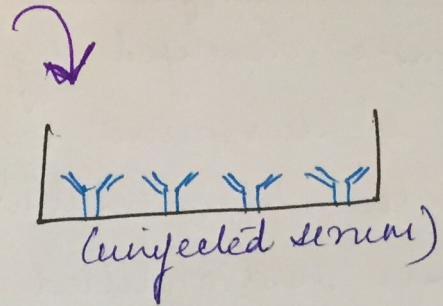 (uninjected serum)